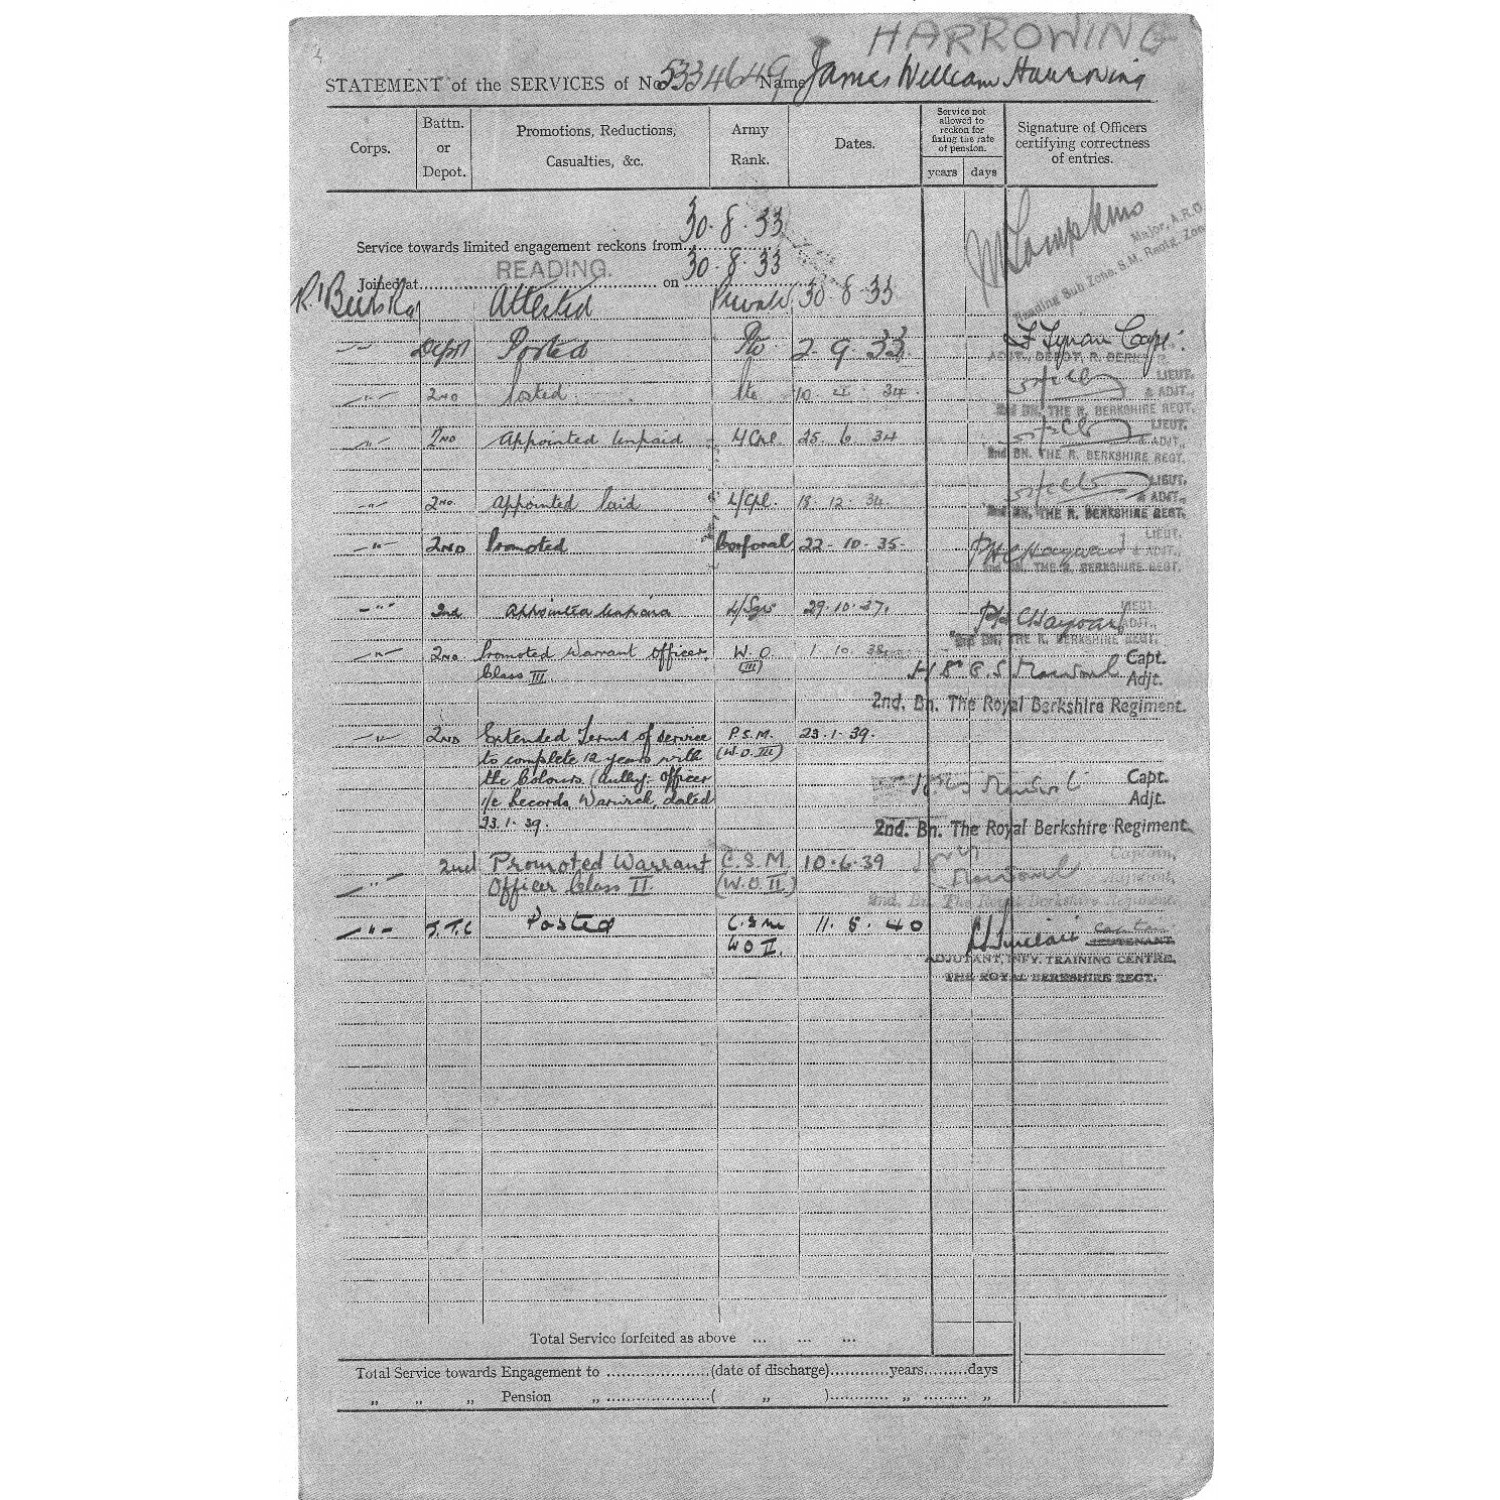 HARROWING
STATEMENT of the SERVICES of No 5334649 Name James William Harrowing
Corps.
Battn. or Depot.
Promotions, Reductions, Casualties, &c.
Army Rank.
Dates.
Service not allowed to reckon for fixing the rate of pension.
years days
Signature of Officers certifying correctness of entries.
Service towards limited engagement reckons from 30.8.33
Joined at READING. on 30.8.33
Major, A.R.O.
Reading Sub Zone, S.M. Rectg. Zone
R. Berks R. Attested Private 30.8.33
-"- Depot Posted Pte 2.9.33 Capt.
ADJT., DEPOT, R. BERKS R.
-"- 2ND Posted Pte 10 34 LIEUT. & ADJT.,
2nd BN. THE R. BERKSHIRE REGT.
-"- 2ND Appointed Unpaid L/Cpl 25 6 34 LIEUT. & ADJT.,
2nd BN. THE R. BERKSHIRE REGT.
-"- 2ND Appointed Paid L/Cpl. 18 12 34 LIEUT. & ADJT.,
2nd BN. THE R. BERKSHIRE REGT.
-"- 2ND Promoted Corporal 22-10-35- LIEUT. & ADJT.,
2nd BN. THE R. BERKSHIRE REGT.
-"- 2nd Appointed Unpaid L/Sgt 29.10.37. LIEUT. ADJT.,
2nd BN. THE R. BERKSHIRE REGT.
-"- 2ND Promoted Warrant Officer W.O. 1 10 38 Capt.
Class III (III) Adjt.
2nd. Bn. The Royal Berkshire Regiment.
-"- 2ND Extended Terms of service P.S.M. 23.1.39.
to complete 12 years with (W.O. III)
the Colours. (Auth: Officer Capt.
i/c Records, Warwick, dated Adjt.
23.1.39.
2nd. Bn. The Royal Berkshire Regiment.
-"- 2nd Promoted Warrant C.S.M. 10.6.39 Captain,
Officer Class II (W.O. II) Adjutant,
2nd. Bn. The Royal Berkshire Regiment.
-"- I.T.C Posted C.S.M. 11.5.40 Sinclair Captain LIEUTENANT
WO II.
ADJUTANT, INFY. TRAINING CENTRE,
THE ROYAL BERKSHIRE REGT.
Total Service forfeited as above ... ... ...
Total Service towards Engagement to ......(date of discharge)......years......days
" " " Pension " ......( " )...... " ...... "